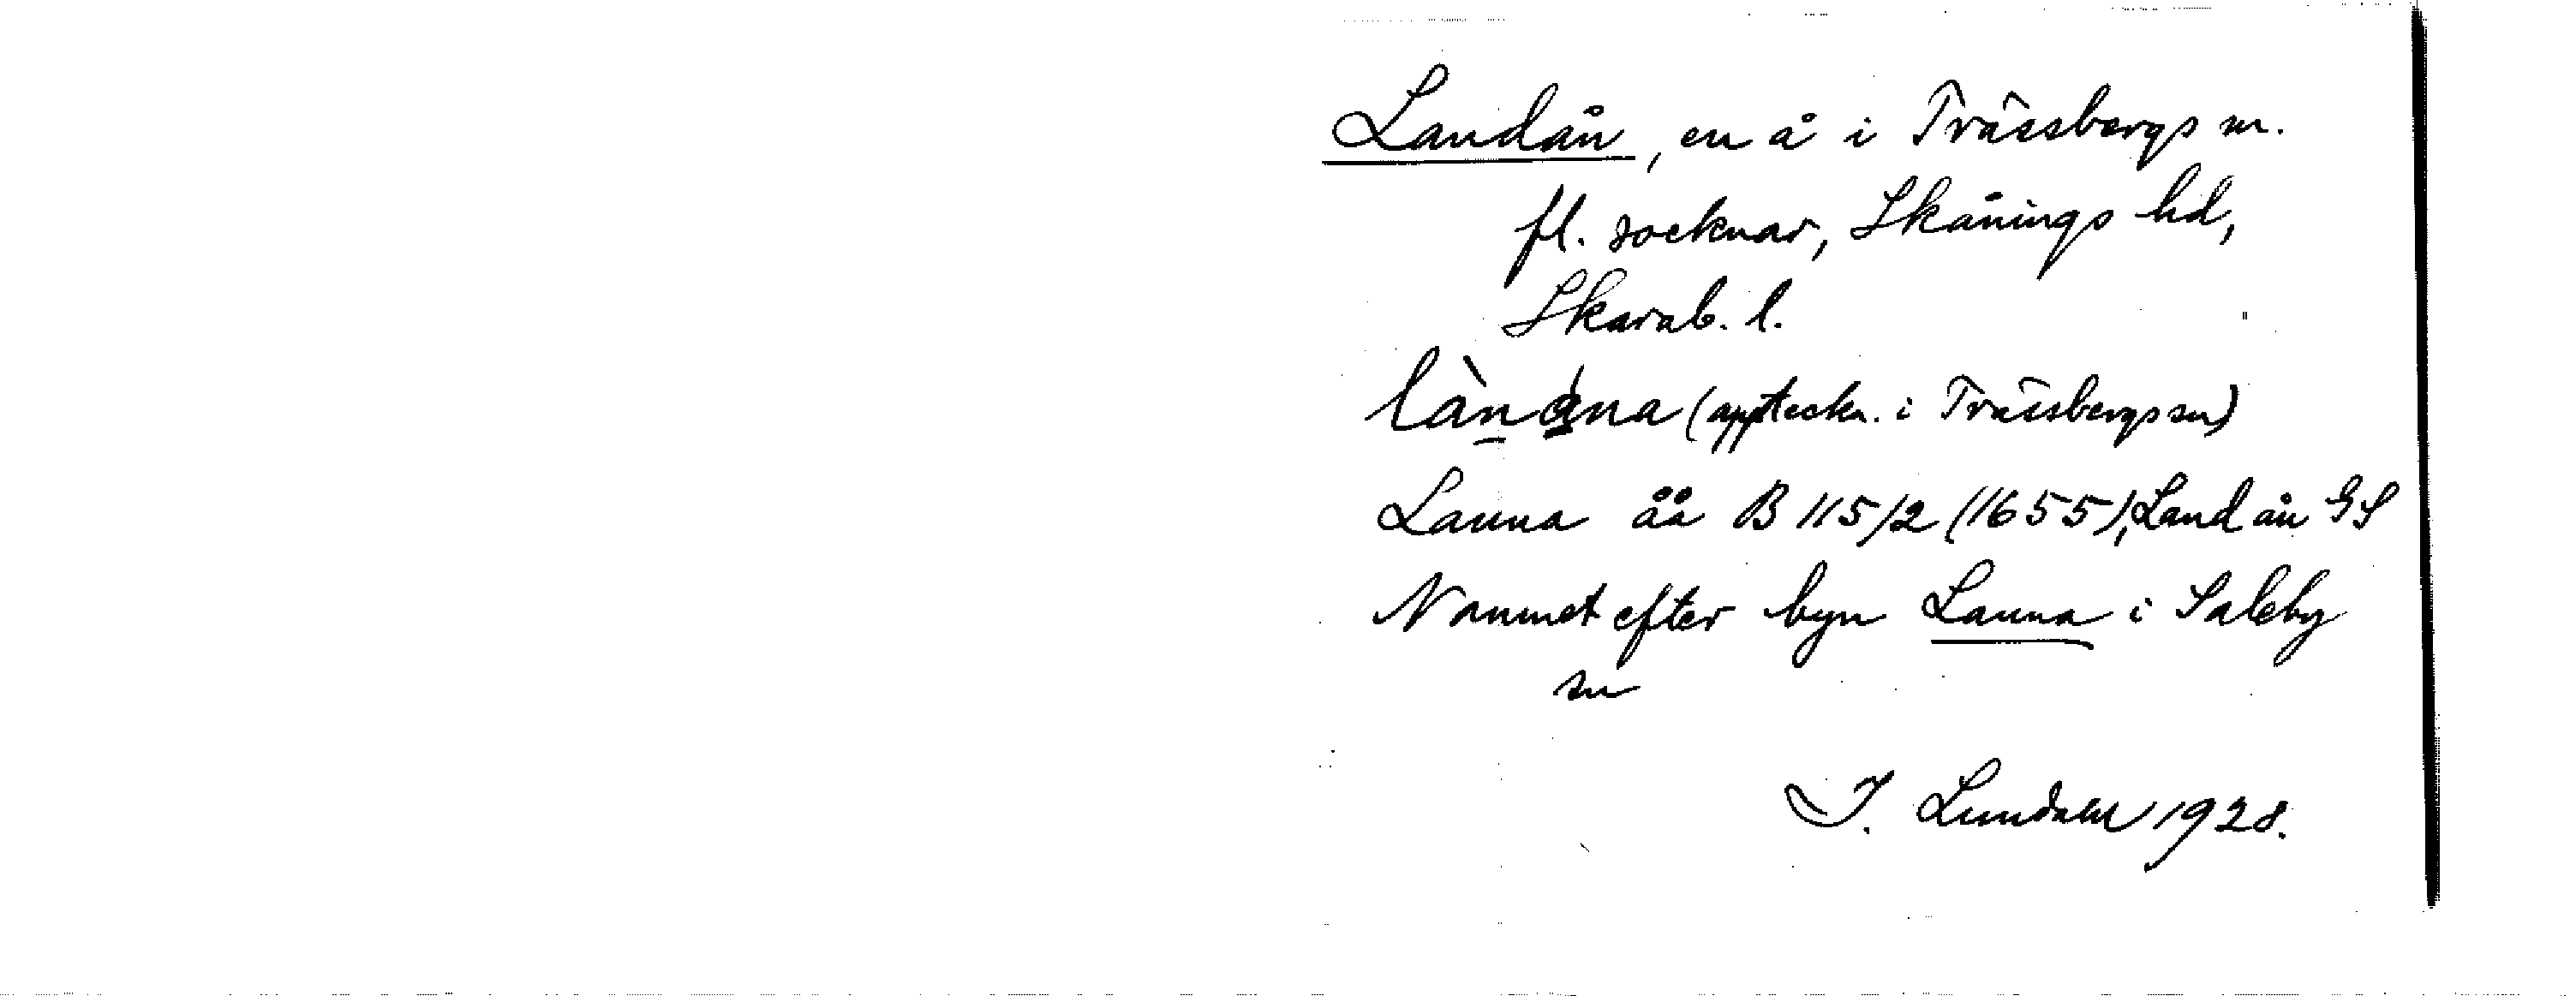 Landån, en å i Trässbergs sn.
fl. socknar, Skånings hd,
Skarab. l.
lànána (uppteckn. i Trässbergs sn)
Lanna åå B 115/2 (1655), Landån GS
Namnet efter byn Lanna i Saleby
sn
I. Lundahl 1928.